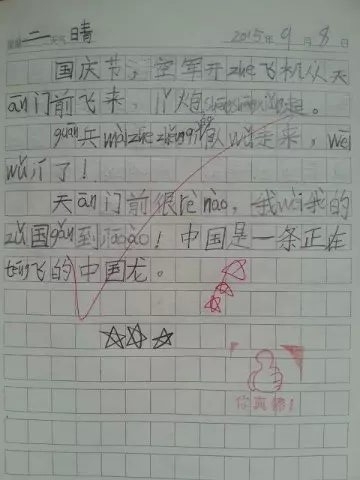 二 晴 2015年9月8日
国庆节，空军开zhe飞机从天
ān门前飞来，
guān兵 mài zhe zhěng 队 wǔ 走来，wēi
wǔ 了！
天ān门前很 rè nào，我 wèi 我的
zǔ国gǎn到 ào！中国是一条正在
téng飞的中国龙。
你真棒！